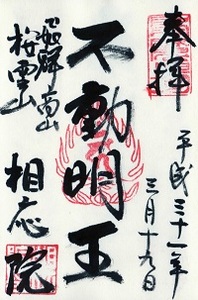 奉拝
平成三十一年
三月十九日
不動明王
飛騨高山
桜雲山
相応院